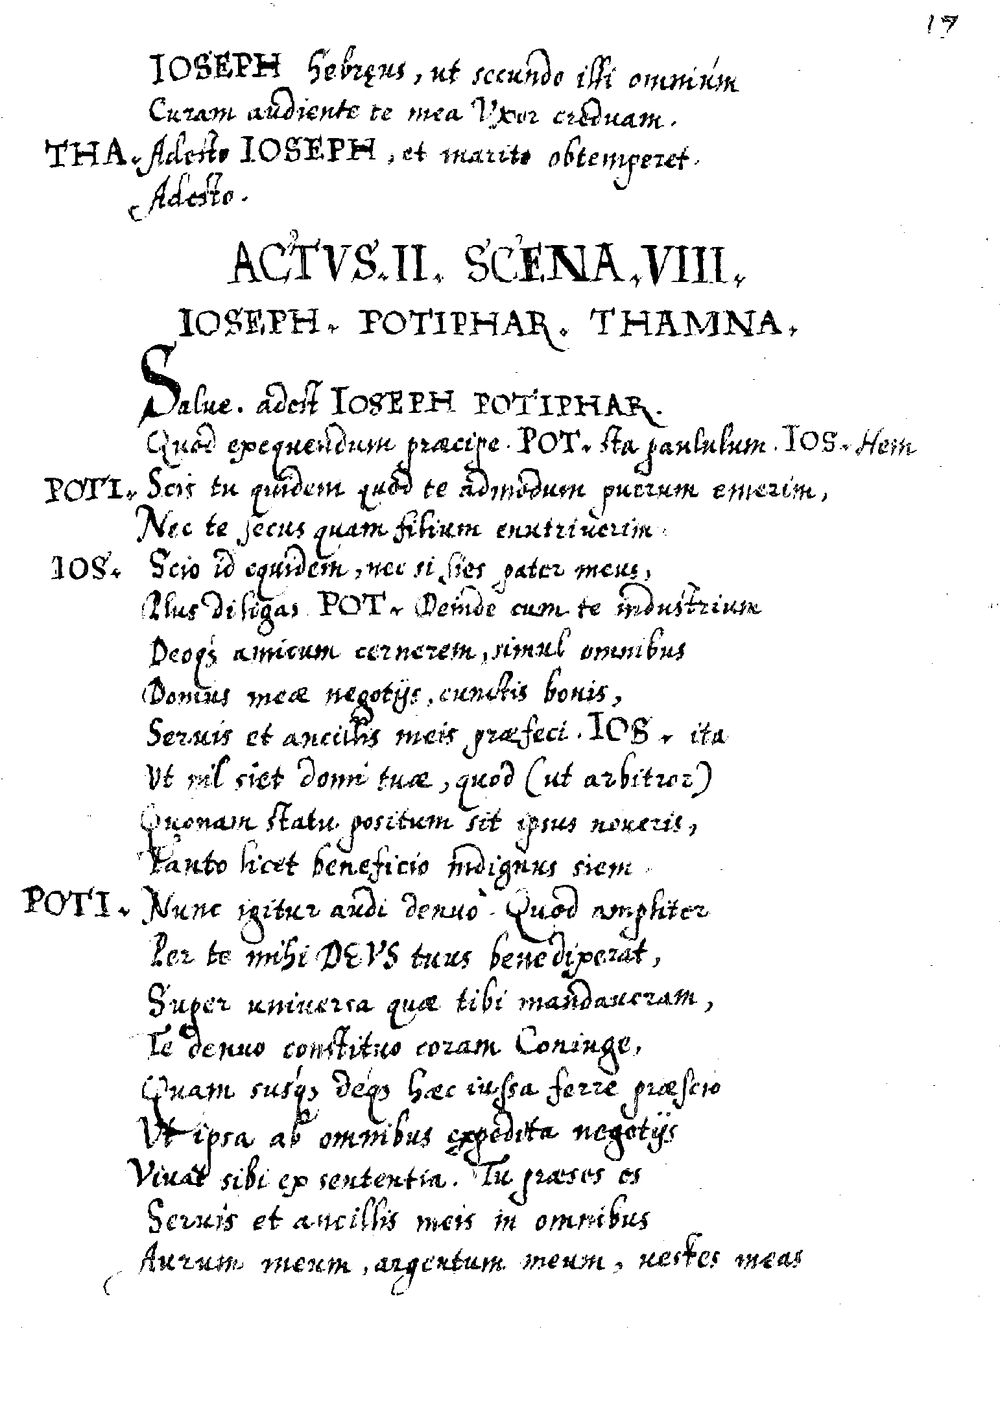 17
IOSEPH hebręus, ut secundo illi omnium
Curam audiente te mea Vxor creduam.
THA. Adesto IOSEPH, et marito obtemperet.
Adesto.
ACTVS. II. SCENA. VIII.
IOSEPH. POTIPHAR. THAMNA.
Salue. adest IOSEPH POTIPHAR.
Quod exequendum præcipe. POT. sta paululum. IOS. Hem
POTI. Scis tu quidem quod te admodum puerum emerim,
Nec te secus quam filium enutriuerim.
IOS. Scio id equidem, nec si sies pater meus,
Plus diligas POT. Deinde cum te industrium
Deoq́ amicum cernerem, simul omnibus
Domus meæ negotijs, cunctis bonis,
Seruis et ancillis meis præfeci. IOS. ita
Vt nil siet domi tuæ, quod (ut arbitror)
Quonam statu positum sit ipsus noueris,
Tanto licet beneficio indignus siem.
POTI. Nunc igitur audi denuò. Quod ampliter
Per te mihi DEVS tuus benedixerat,
Super uniuersa quæ tibi mandaueram,
Te denuo constituo coram Coniuge,
Quam susq́ꝫ deq́ꝫ hæc iussa ferre præscio
Vt ipsa ab omnibus expedita negotijs
Viuat sibi ex sententia. Tu præses es
Seruis et ancillis meis in omnibus
Aurum meum, argentum meum, uestes meas